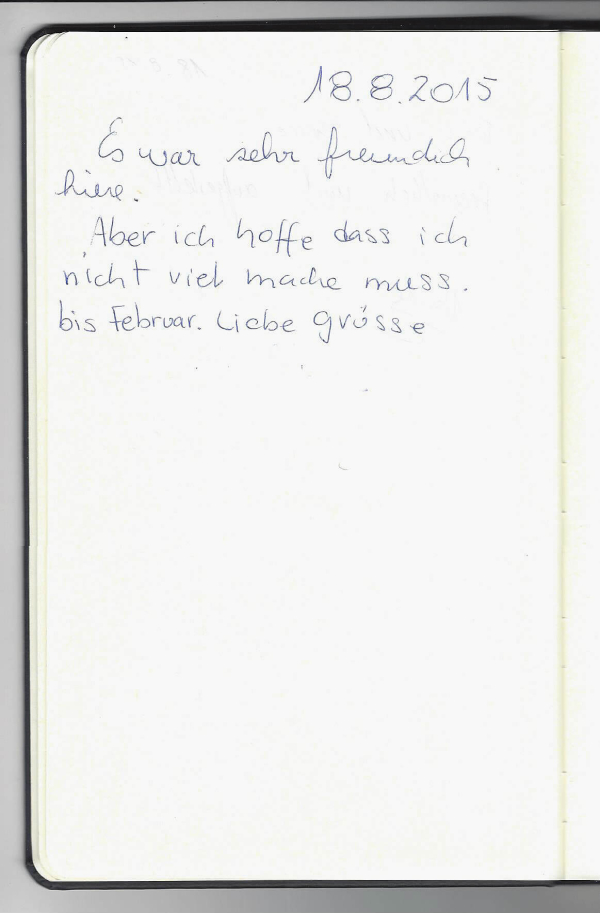 18.8.2015
Es war sehr freundich
hiere.
Aber ich hoffe dass ich
nicht viel mache muss.
bis Februar. Liebe grüsse